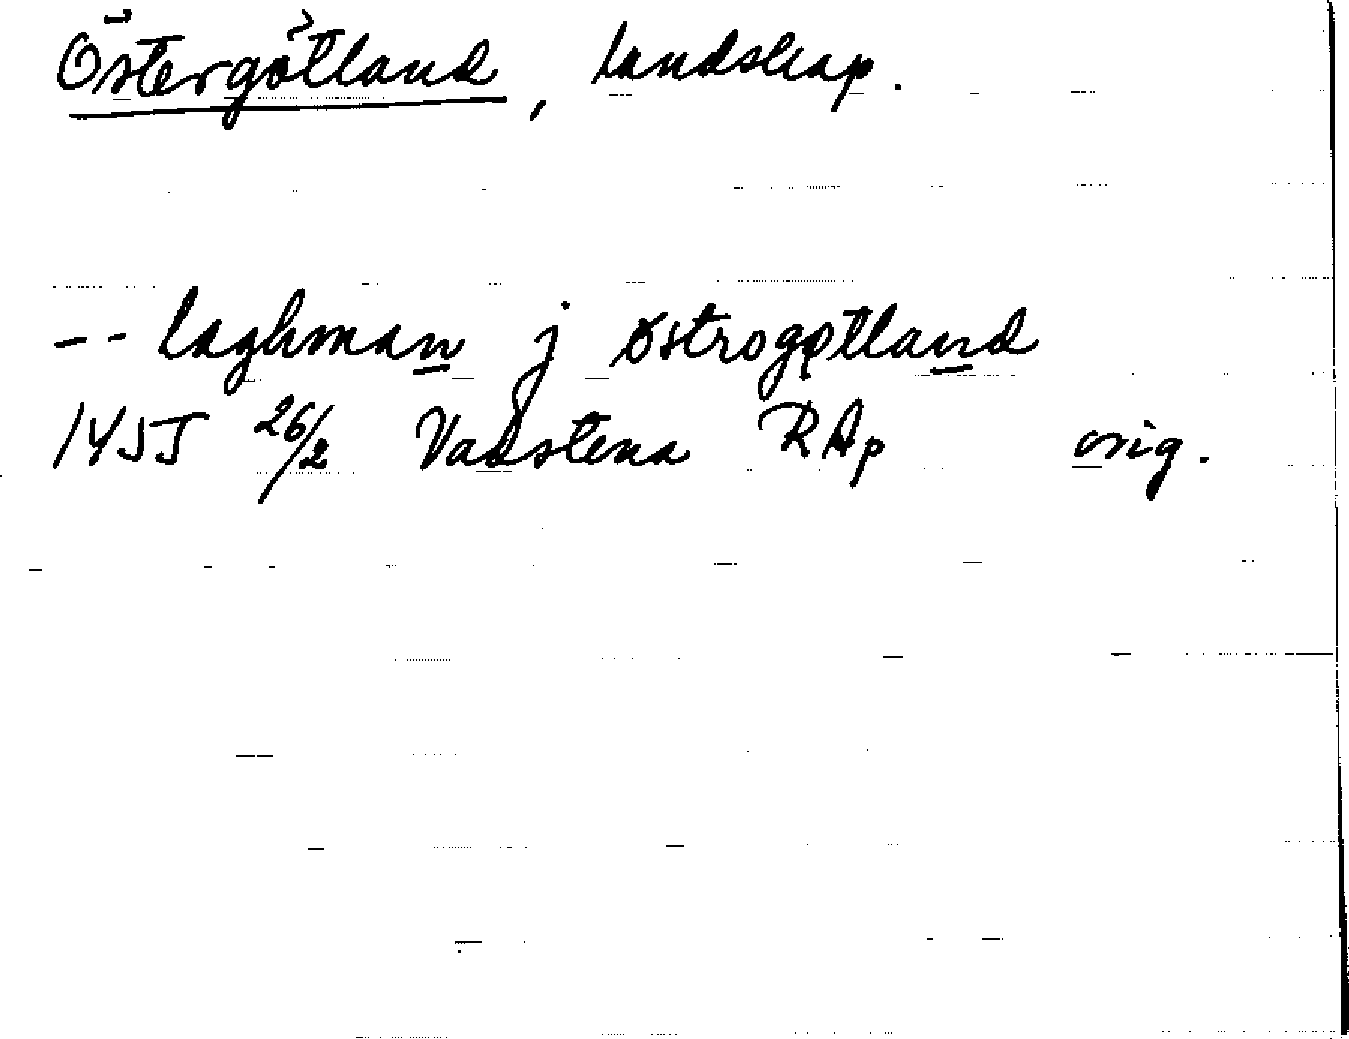 Östergötland, landskap.
-- laghman j østrogøtland
1455 26/2 Vadstena RAp orig.